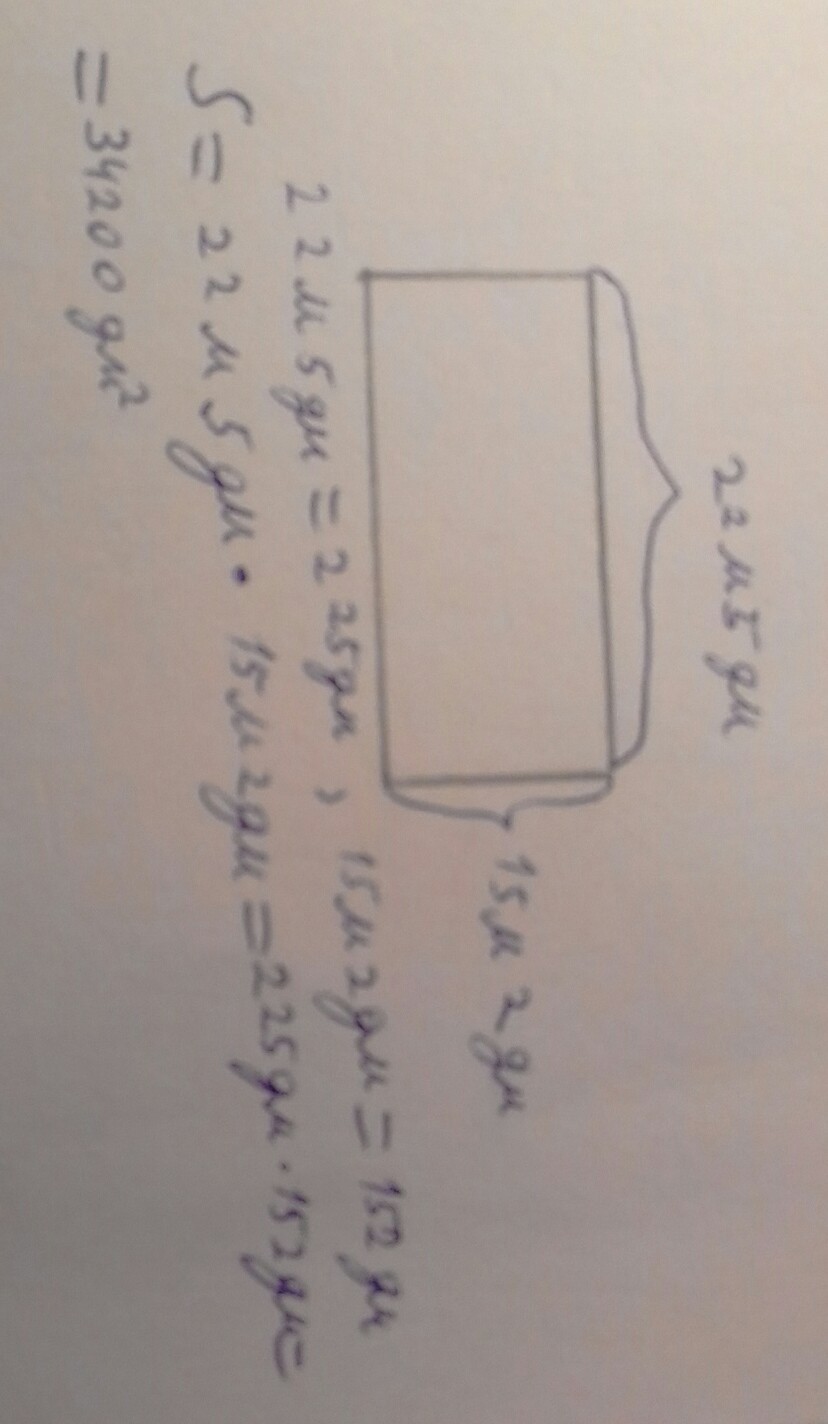 22 м 5 дм
15 м 2 дм
22 м 5 дм = 225 дм, 15 м 2 дм = 152 дм
S = 22 м 5 дм · 15 м 2 дм = 225 дм · 152 дм =
= 34200 дм²